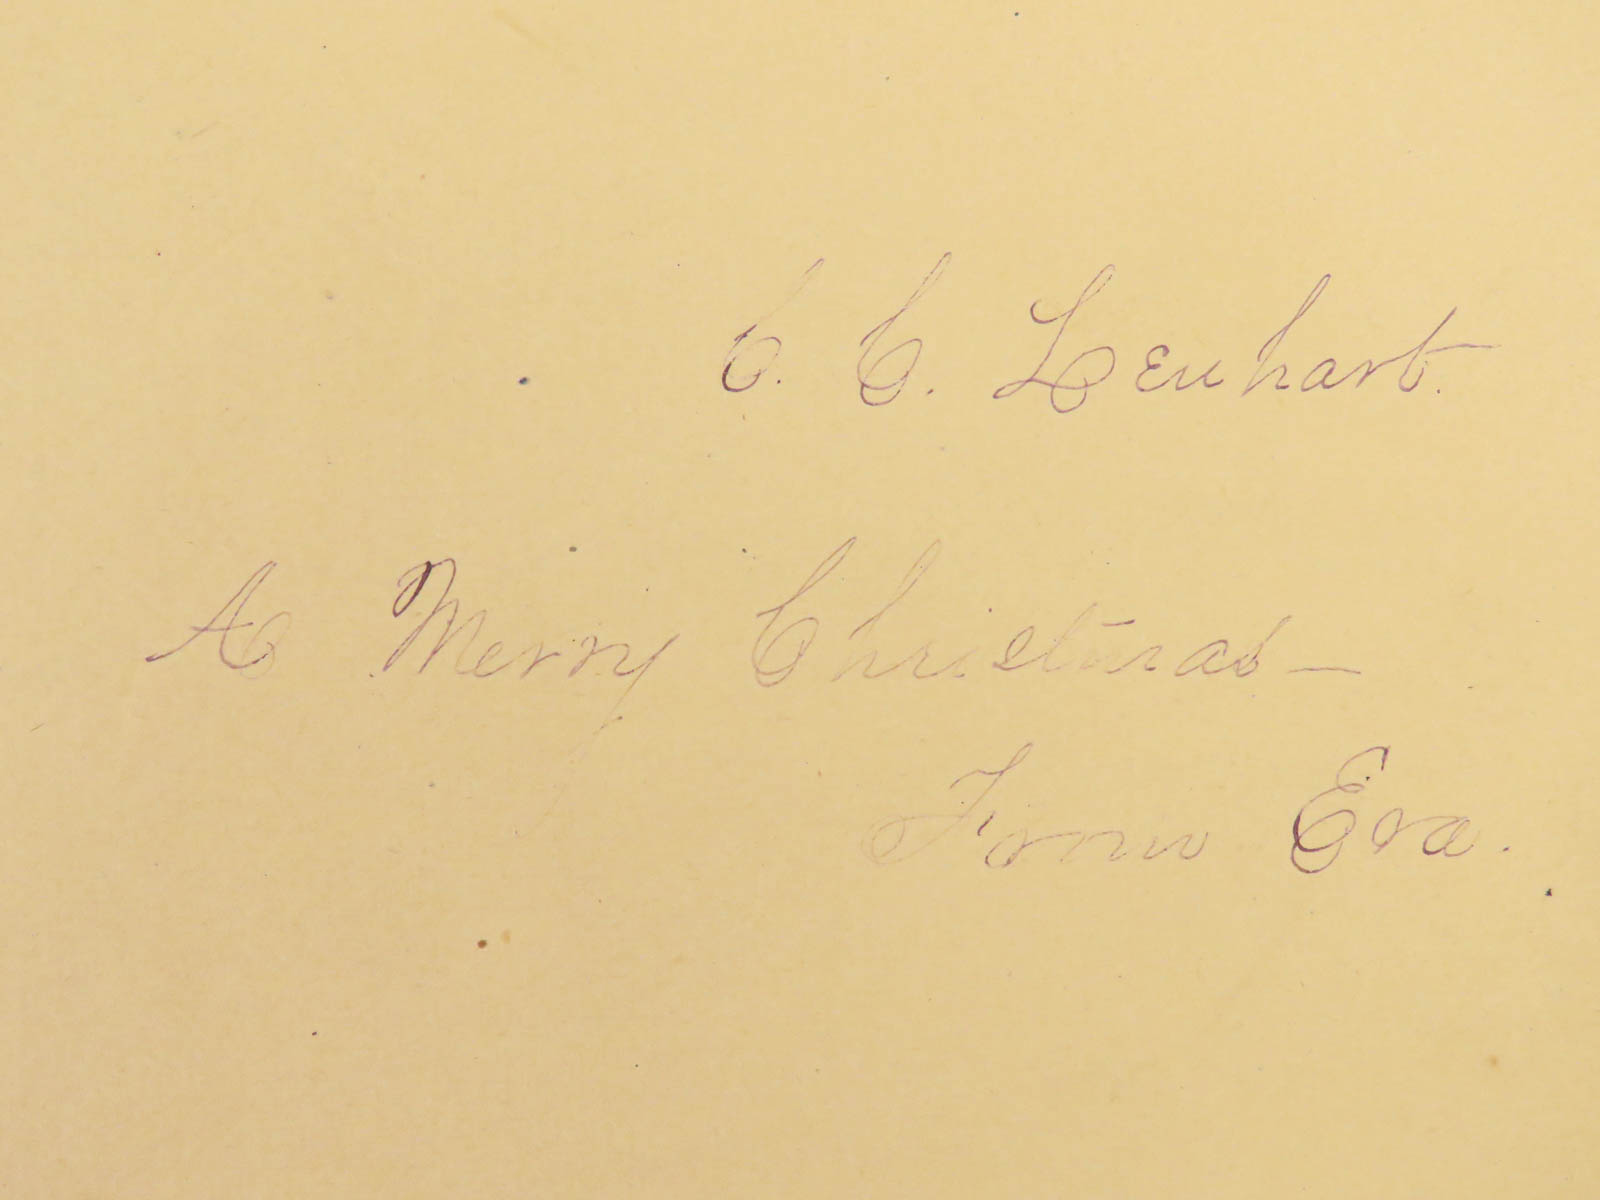 C. C. Lenhart.
A Merry Christmas —
From Eva.